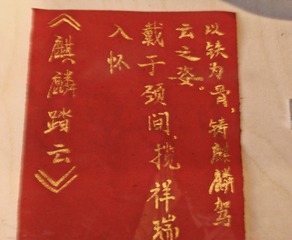 以铁为骨，铸麒麟驾
云之姿。
戴于颈间，揽祥瑞
入怀
《麒麟踏云》